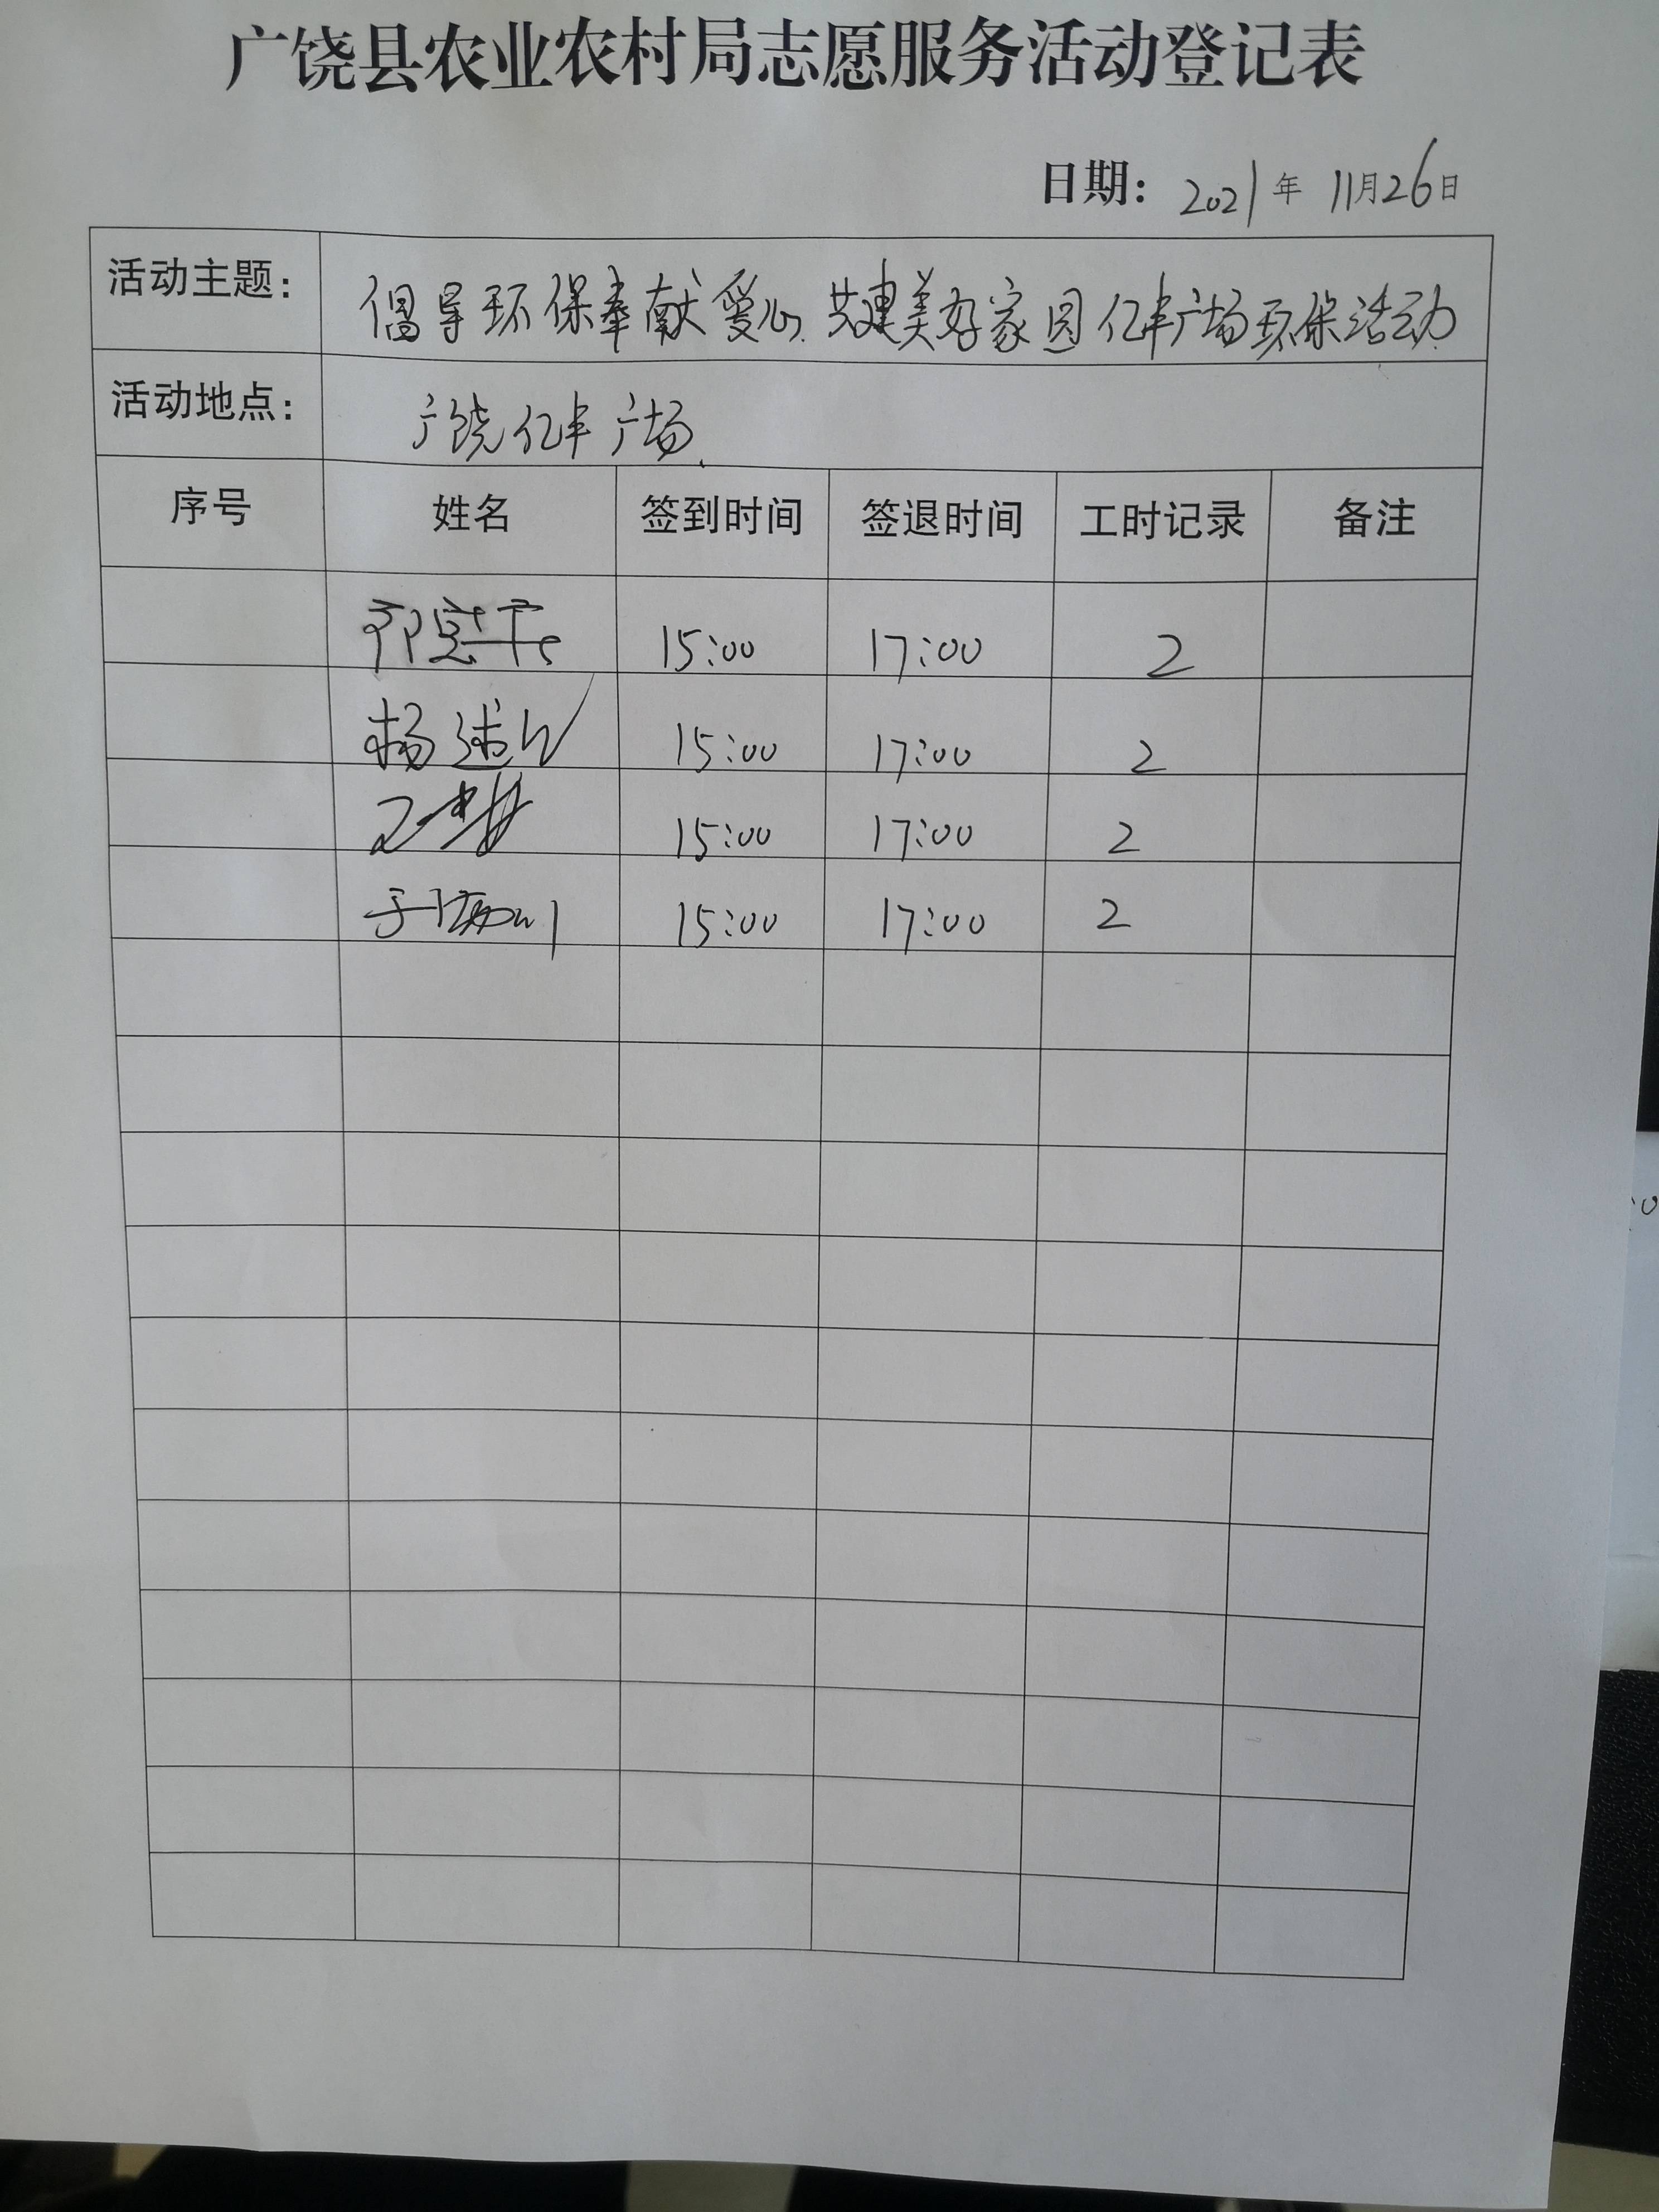 广饶县农业农村局志愿服务活动登记表
日期: 2021年 11月26日
活动主题: 倡导环保奉献爱心 共建美好家园亿丰广场环保活动
活动地点: 广饶亿丰广场
序号 姓名 签到时间 签退时间 工时记录 备注
15:00 17:00 2
杨 15:00 17:00 2
15:00 17:00 2
15:00 17:00 2